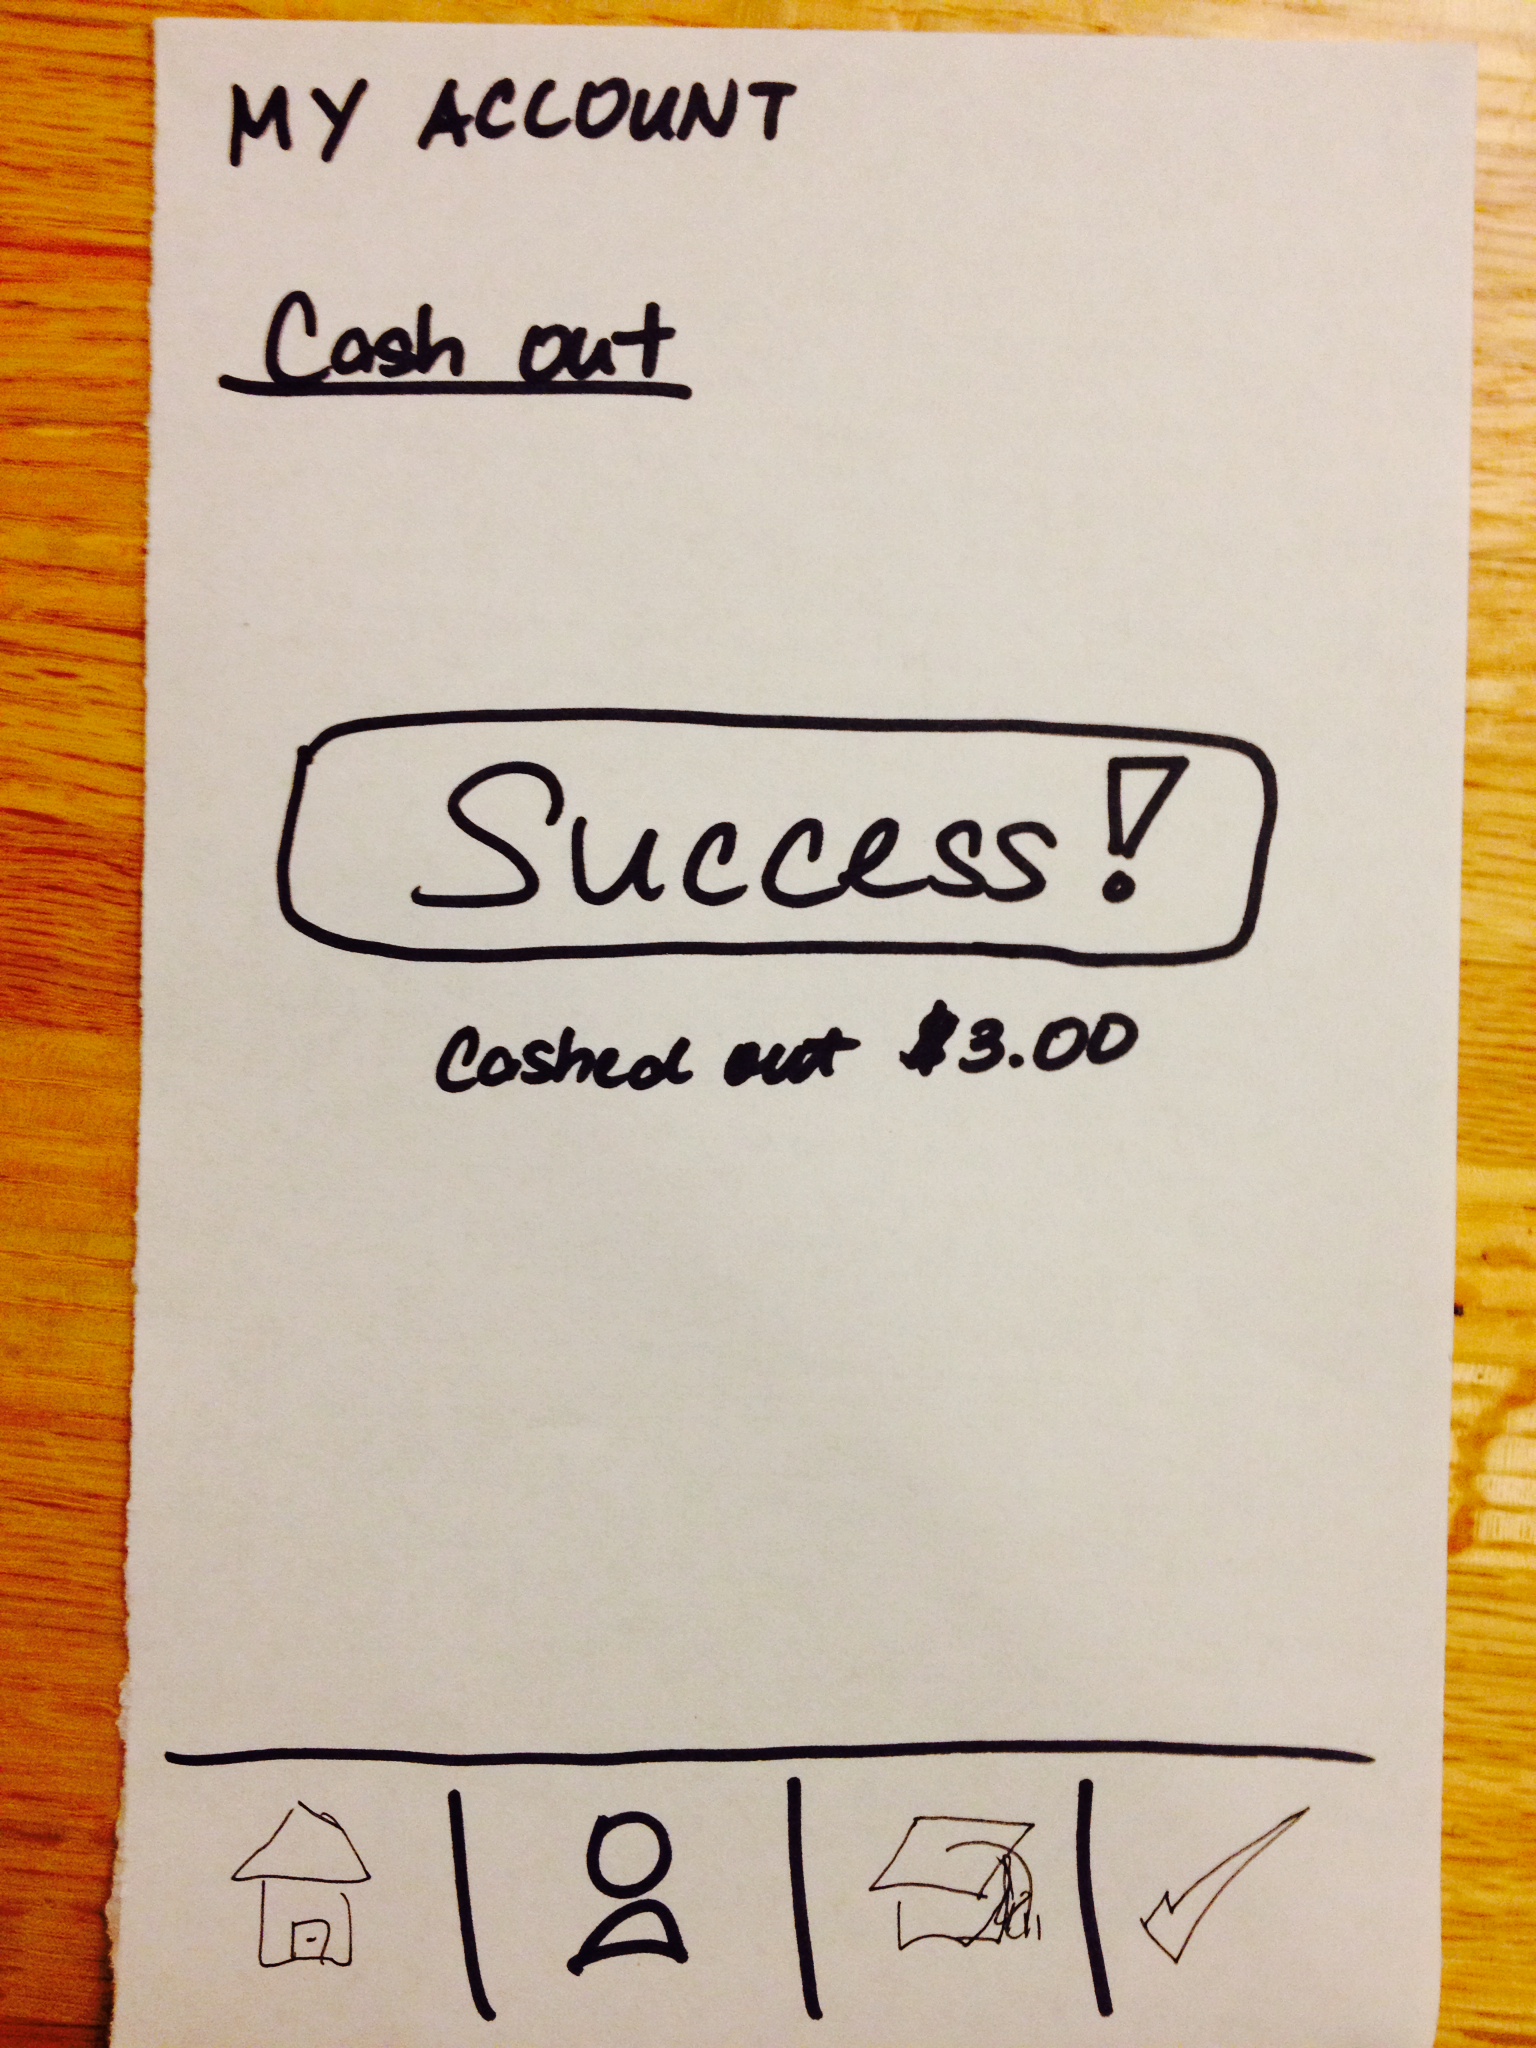 MY ACCOUNT
Cash out
Success!
Cashed out $3.00